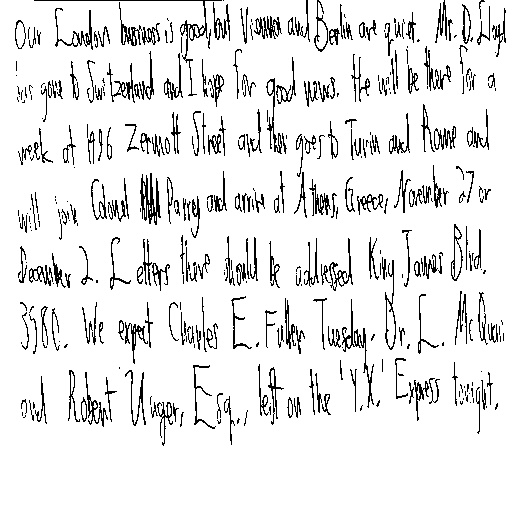 Our London business is good, but Vienna and Berlin are quiet. Mr. D. Lloyd
has gone to Switzerland and I hope for good news. He will be there for a
week at 1496 Zermott Street and then goes to Turin and Rome and
will join Colonel Parry and arrive at Athens, Greece, November 27 or
December 2. Letters there should be addressed King James Blvd.
3580. We expect Charles E. Fuller Tuesday. Dr. L. McQuaid
and Robert Unger, Esq., left on the 'Y.X.' Express tonight.